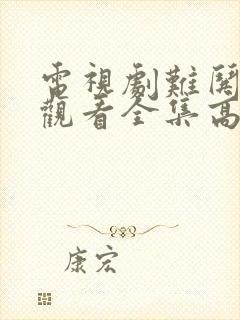 電視劇難関
觀看全集高
康宏